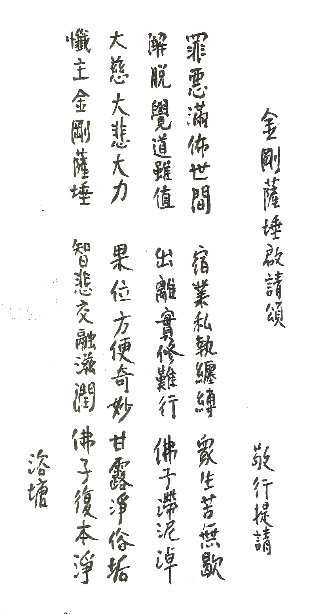 金剛薩埵啟請頌 敬行提請
罪惡滿佈世間 宿業私執纏縛 眾生苦無歇
解脫覺道雖值 出離實修難行 佛子滯泥淖
大慈大悲大力 果位方便奇妙 甘露淨俗垢
懺主金剛薩埵 智悲交融滋潤 佛子復本淨
浴塘